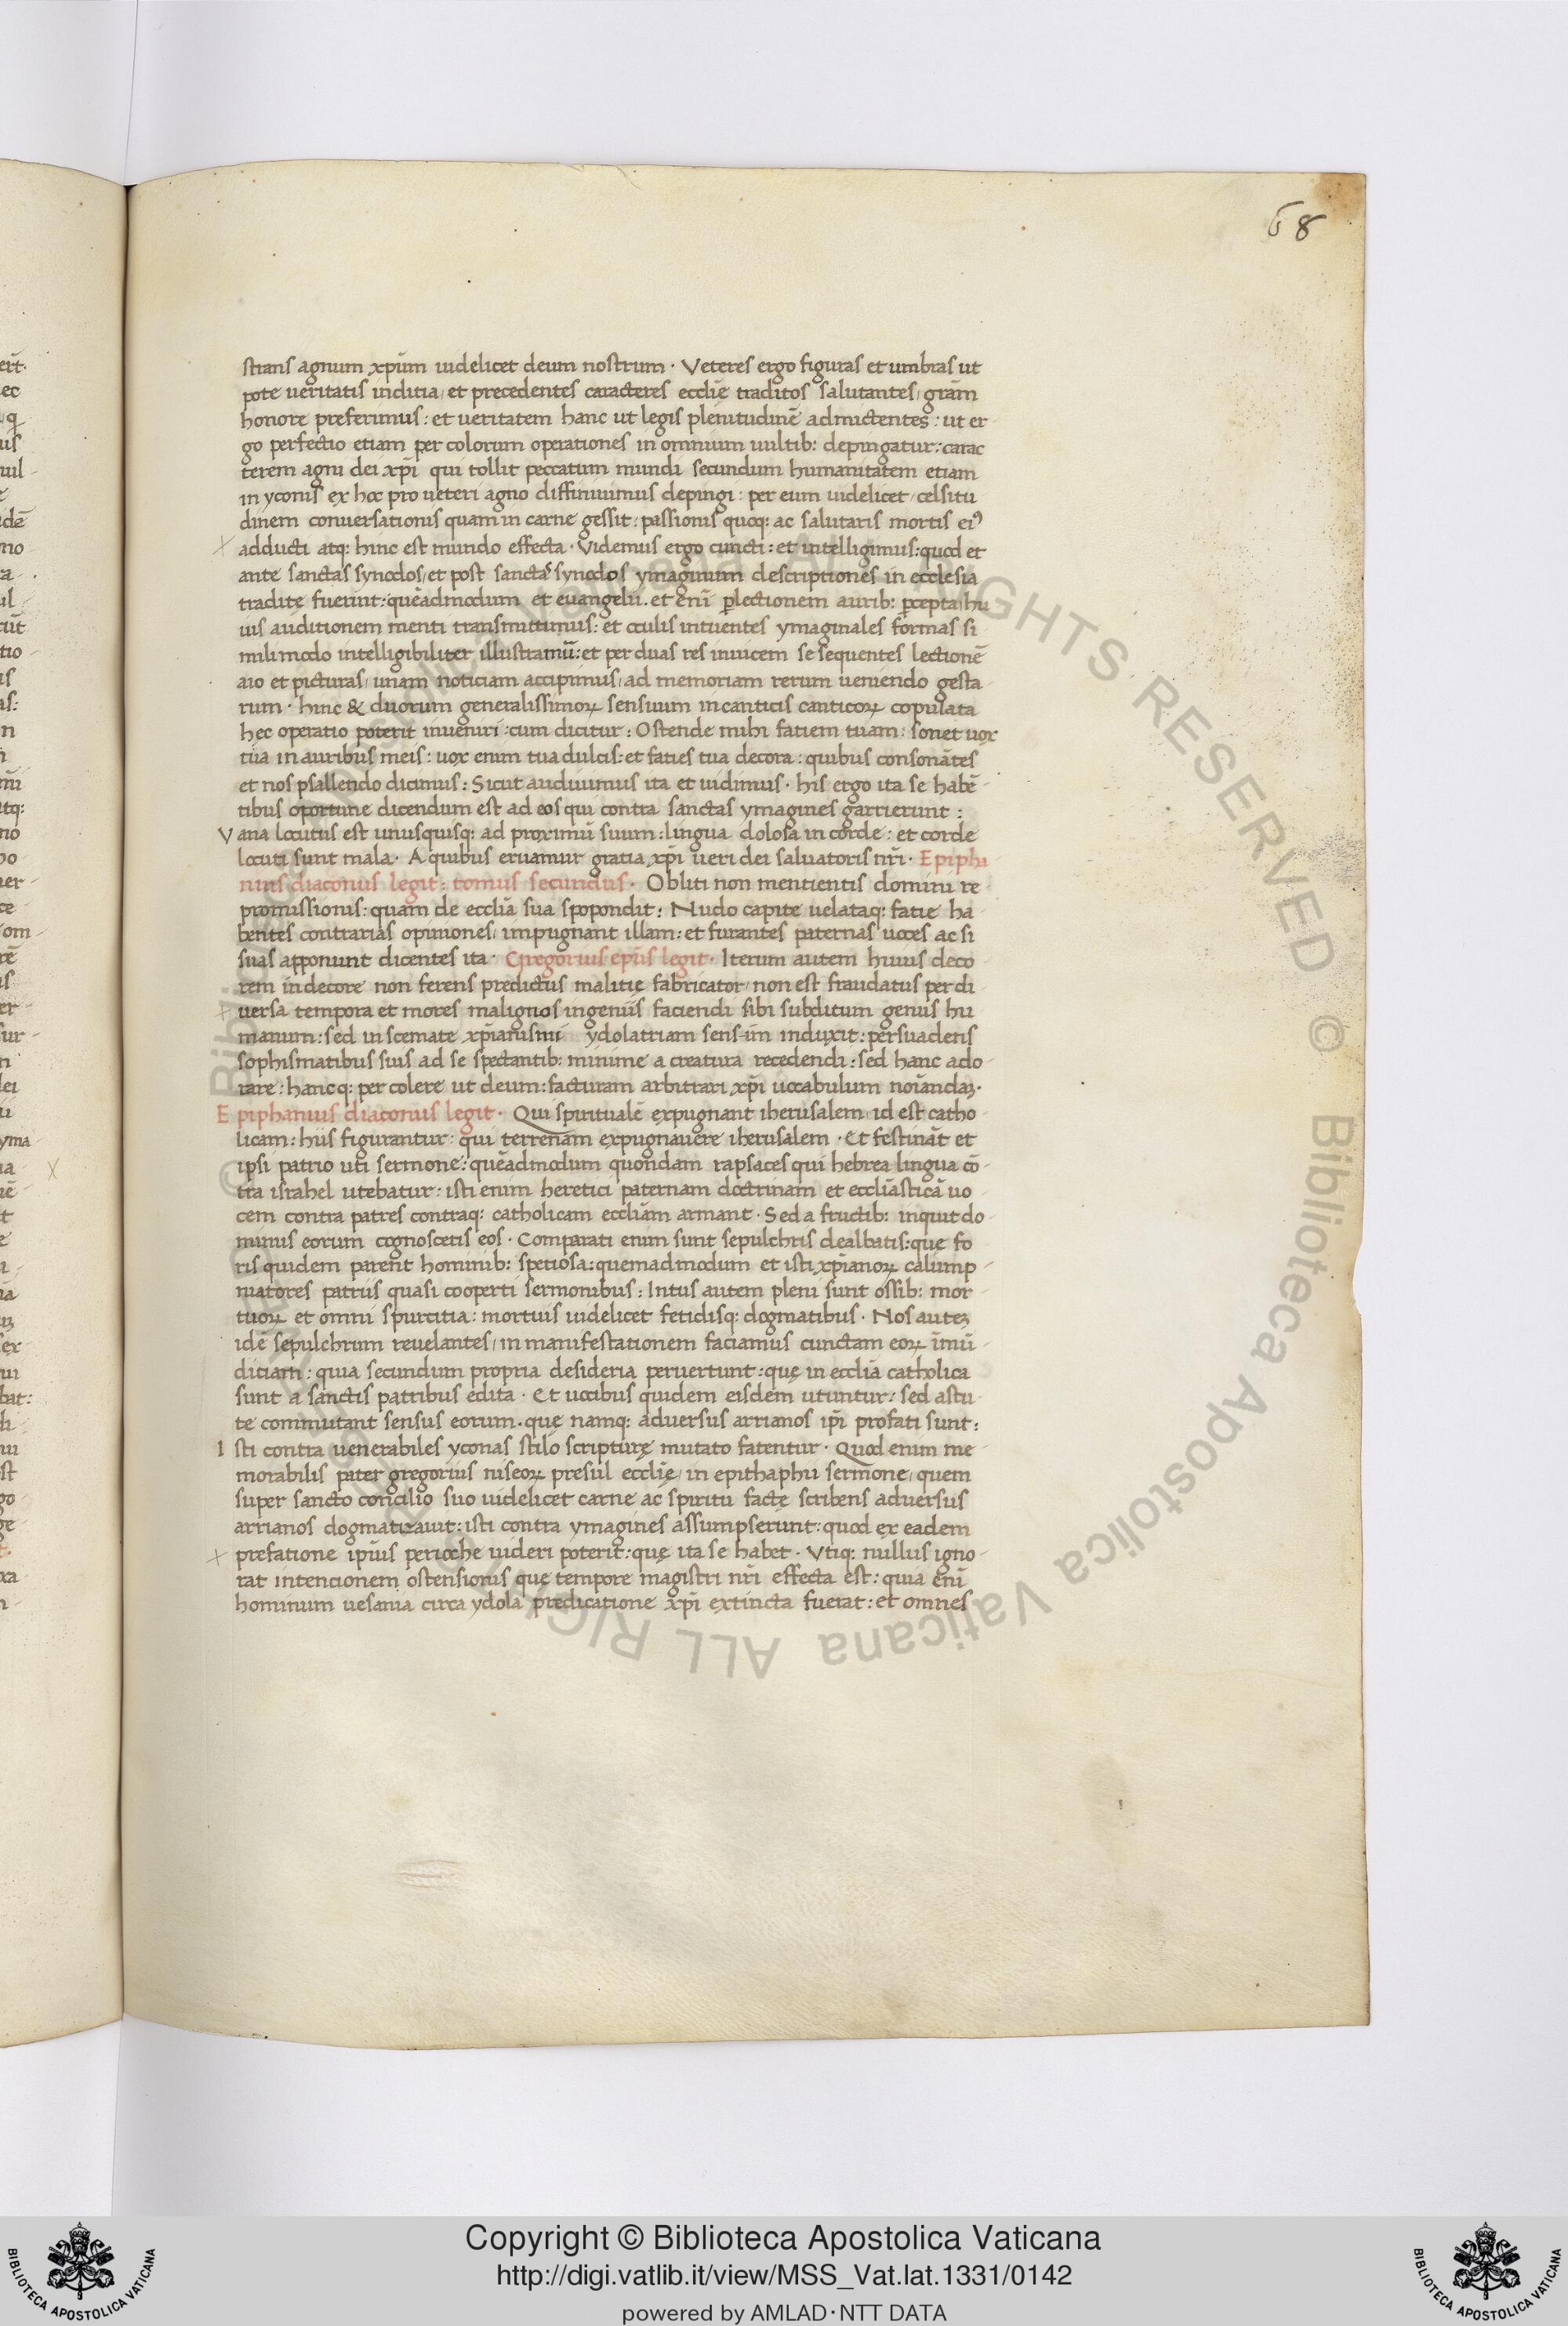 68
strans agnum xp̄um uidelicet deum nostrum · Veteres ergo figuras et umbras ut
pote ueritatis inditia, et precedentes caracteres eccl̄ie traditos salutantes, grām
honore preferimus : et ueritatem hanc ut legis plenitudinē admictentes : ut er-
go perfectio etiam per colorum operationes in omnium uultib: depingatur : carac
terem agni dei xp̄i qui tollit peccatum mundi secundum humanitatem etiam
in yconis ex hoc pro ueteri agno diffiniuimus depingi : per eum uidelicet, celsitu
dinem conuersationis quam in carne gessit : passionis quoq: ac salutaris mortis ei⁹
adducti atq: hinc est mundo effecta · Videmus ergo cuncti : et intelligimus : quod et
ante sanctas synodos, et post sanctas synodos ymaginum descriptiones in ecclesia
tradite fuerint : quēadmodum et euangelii. et enī p̱lectionem aurib: p̱cepta, hu
ius auditionem menti transmittimus : et oculis intuentes ymaginales formas si
mili modo intelligibiliter illustramū : et per duas res inuicem se sequentes lectionē
aio et picturas, unam noticiam accipimus, ad memoriam rerum ueniendo gesta
rum · hinc & duorum generalissimoꝝ sensuum in canticis canticoꝝ copulata
hec operatio poterit inueniri : cum dicitur : Ostende mihi fatiem tuam : sonet uox
tua in auribus meis : uox enim tua dulcis : et faties tua decora : quibus consonātes
et nos psallendo dicimus : Sicut audiuimus ita et uidimus · his ergo ita se habē-
tibus oportune dicendum est ad eos qui contra sanctas ymagines garrierunt :
Vana locutus est unusquisq: ad proximū suum : lingua dolosa in corde : et corde
locuti sunt mala · A quibus eruamur gratia xp̄i ueri dei saluatoris nr̄i · Epipha
nius diaconus legit : tomus secundus · Obliti non mentientis domini re
promissionis : quam de eccl̄ia sua spopondit : Nudo capite uelataq: fatie ha
bentes contrarias opiniones, impugnant illam : et furantes paternas uoces ac si
suas apponunt dicentes ita · Gregorius ep̄us legit · Iterum autem huius deco
rem indecore non ferens predictus malitię fabricator, non est fraudatus per di
uersa tempora et mores malignos ingeniis faciendi sibi subditum genus hu
manum : sed in scemate xp̄ianismi ydolatriam sens-im induxit : persuadens
sophismatibus suis ad se spectantib: minime a creatura recedendi : sed hanc ado
rare : hancq: per colere ut deum : facturam arbitrari xp̄i uocabulum noīandaꝫ ·
Epiphanius diaconus legit · Qui spiritualē expugnant iherusalem, id est catho
licam : hiis figurantur : qui terrenam expugnauere iherusalem · Et festināt et
ipsi patrio uti sermone : quēadmodum quondam rapsaces qui hebrea lingua cō-
tra israhel utebatur : isti enim heretici paternam doctrinam et eccl̄iasticā uo
cem contra patres contraq: catholicam eccl̄iam armant · Sed a fructib: inquit do
minus eorum cognoscetis eos · Comparati enim sunt sepulchris dealbatis : que fo
ris quidem parent hominib: spetiosa : quemadmodum et isti xp̄ianoꝝ calump
niatores patriis quasi cooperti sermonibus : Intus autem pleni sunt ossib: mor
tuoꝝ et omni spurcitia : mortuis uidelicet fetidisq: dogmatibus · Nos auteꝫ
idē sepulchrum reuelantes, in manifestationem faciamus cunctam eoꝝ īmū
ditiam : quia secundum propria desideria peruertunt : quę in eccl̄ia catholica
sunt a sanctis patribus edita · Et uocibus quidem eisdem utuntur : sed astu-
te commutant sensus eorum · quę namq: aduersus arrianos ip̄i profati sunt :
Isti contra uenerabiles yconas stilo scripturę mutato fatentur · Quod enim me
morabilis pater gregorius niseoꝝ presul eccl̄ię, in epithaphii sermone, quem
super sancto concilio suo uidelicet carne ac spiritu facte scribens aduersus
arrianos dogmatizauit : isti contra ymagines assumpserunt : quod ex eadem
prefatione ip̄ius perioche uideri poterit : quę ita se habet · Utiq: nullus igno-
rat intencionem ostensionis quę tempore magistri nr̄i effecta est : quia enī
hominum uesania circa ydola predicatione xp̄i extincta fuerat : et omnes
Copyright © Biblioteca Apostolica Vaticana
http://digi.vatlib.it/view/MSS_Vat.lat.1331/0142
powered by AMLAD·NTT DATA
BIBLIOTECA APOSTOLICA VATICANA
BIBLIOTECA APOSTOLICA VATICANA